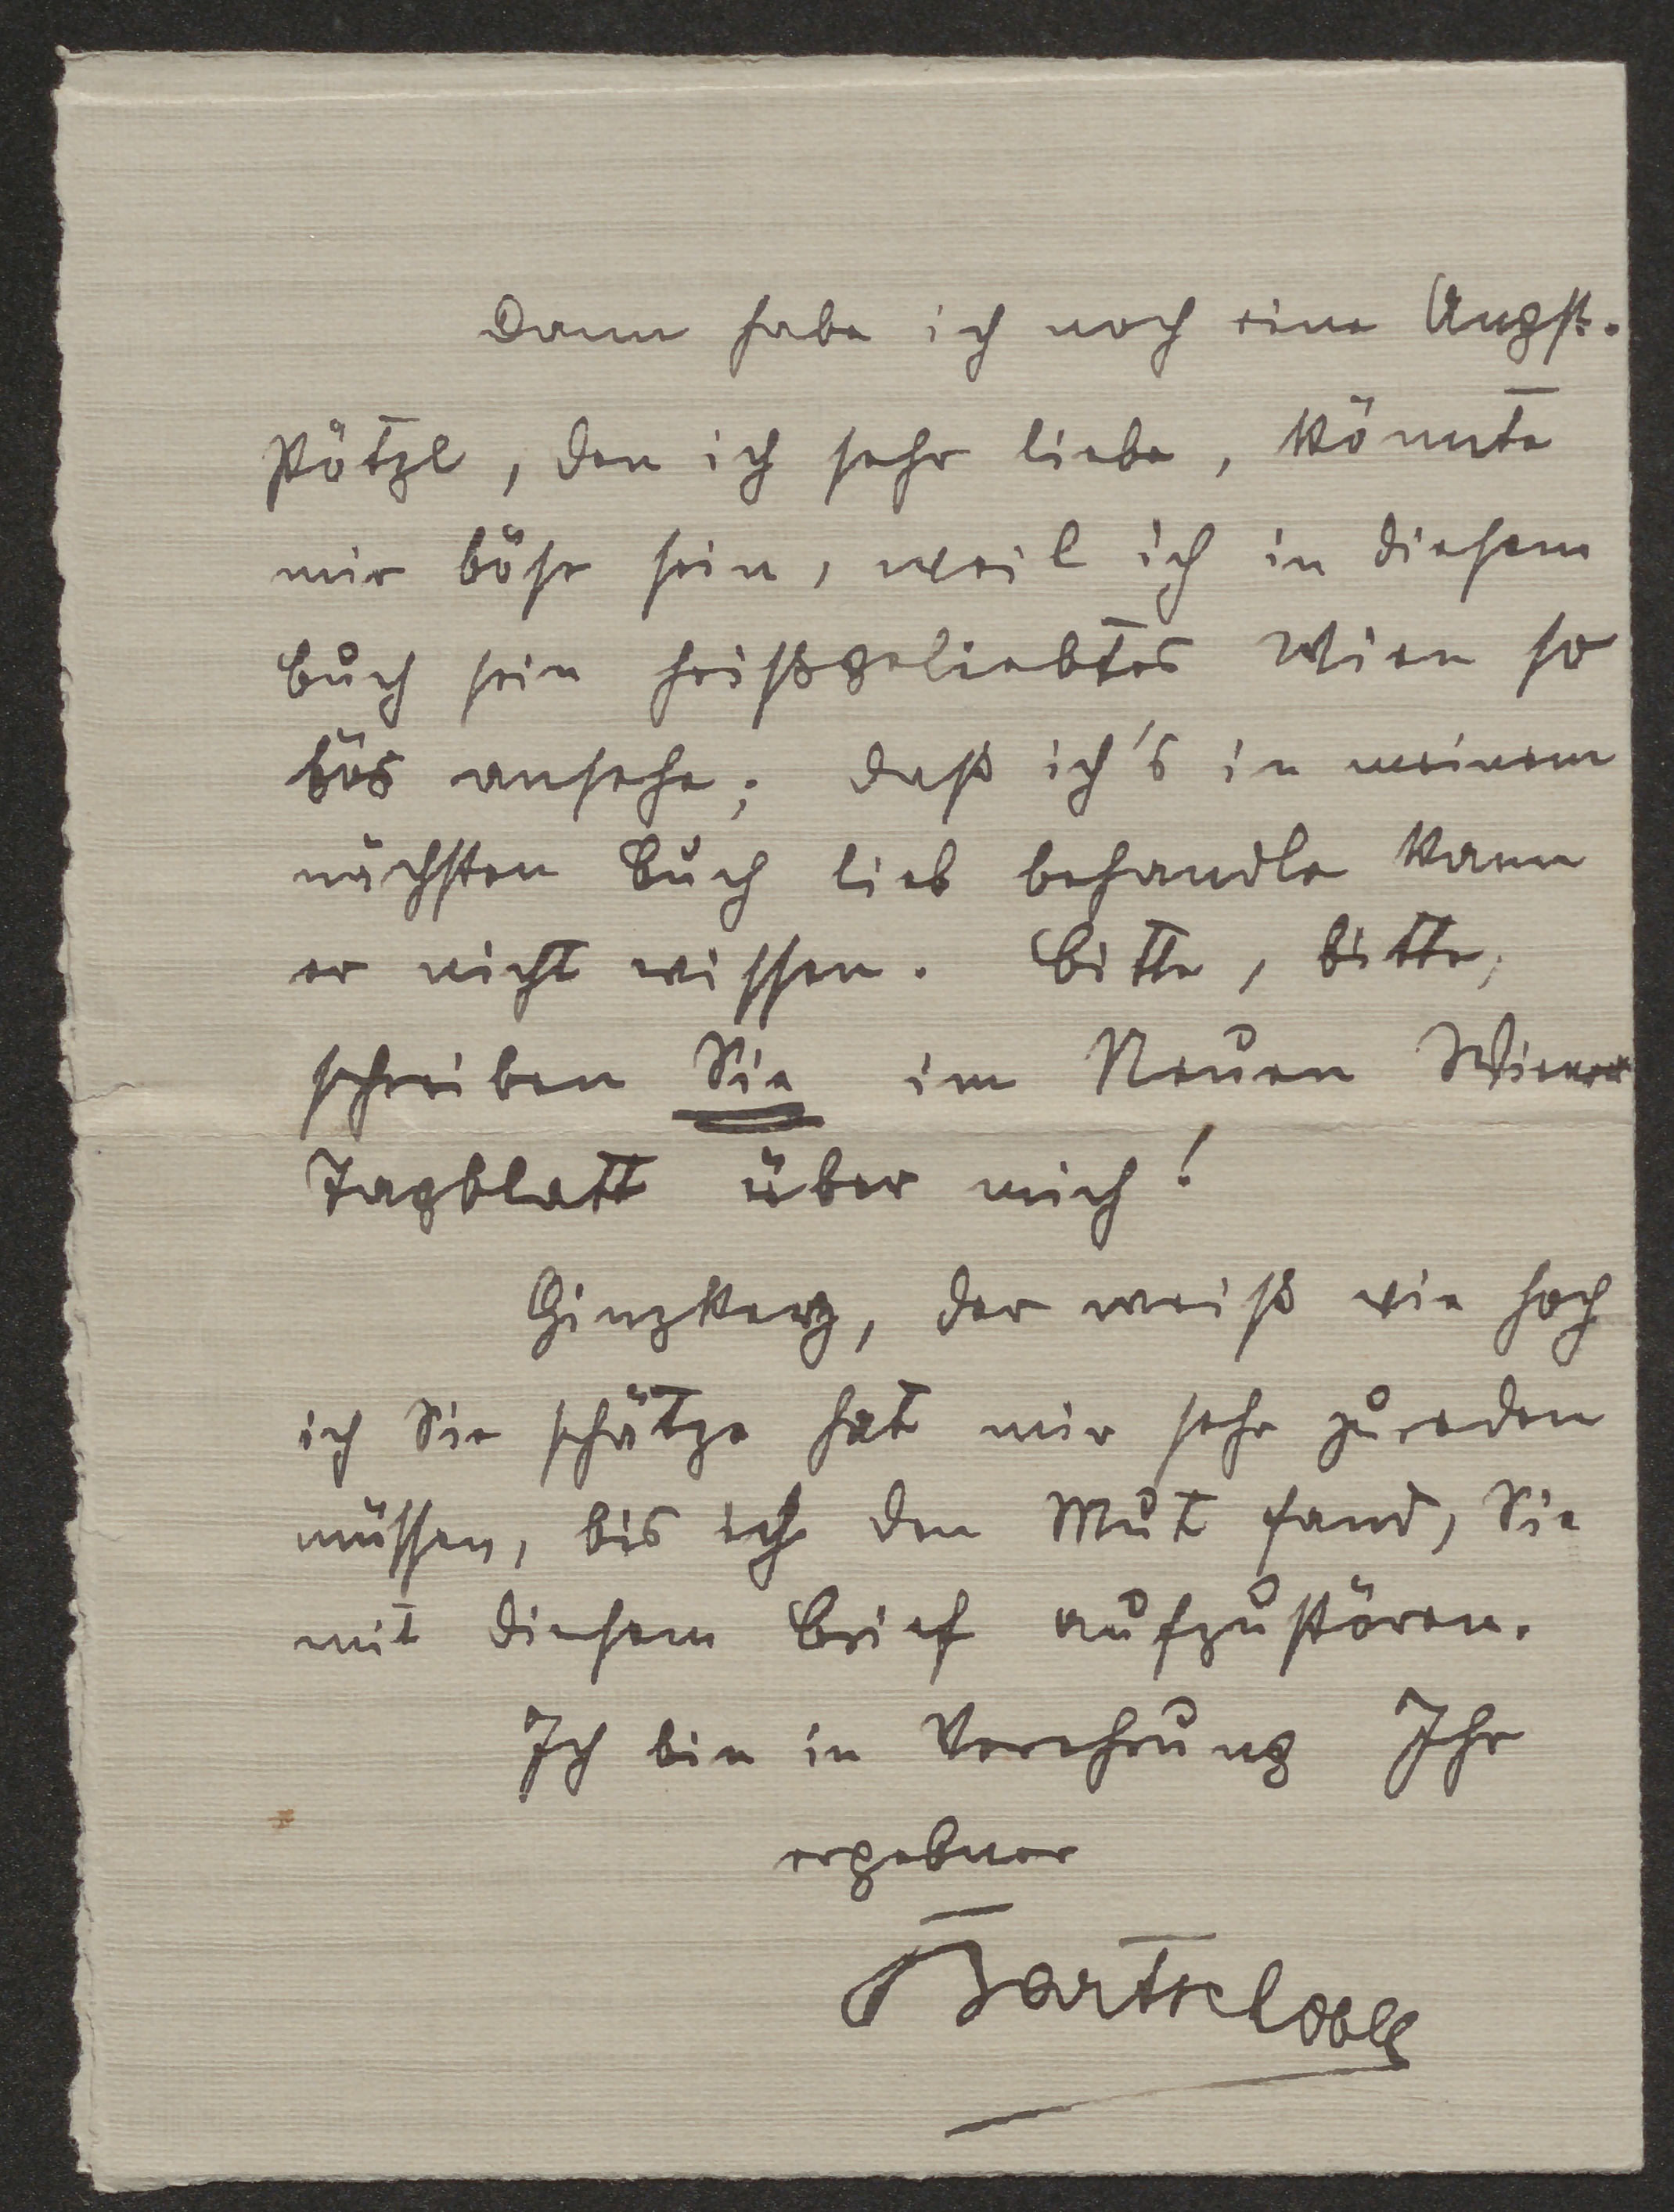 Dann habe ich noch eine Angst.
Pötzl, den ich sehr liebe, könnte
mir böse sein, weil ich in diesem
Buch sein heißgeliebtes Wien so
bös ansehe; daß ich's in meinem
nächsten Buch lieb behandle kann
er nicht wissen. Bitte, bitte,
schreiben Sie im Neuen Wiener
Tagblatt über mich!
Ginzkey, der weiß wie hoch
ich Sie schätze hat mir sehr zureden
müssen, bis ich den Mut fand, Sie
mit diesem Brief aufzustören.
Ich bin in Verehrung Ihr
ergebner
Bartsch